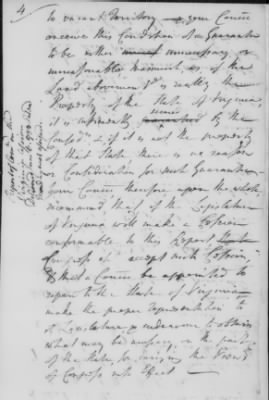 4
to vacant Territory your Comee
conceive this Condition of a Guarantee
to be either unnecessary or
unreasonable inasmuch as if the
Land abovement'd is really the
Property of the State of Virginia
it is sufficiently secured by the
Confed'n & if it is not the property
of that State there is no reason
or Consideration for such Guarantee
your Comee therefore upon the whole
recommend that if the Legislature
of Virginia will make a Cession
conformable to this Report
Congress accept such Cession,
that a Comee be appointed to
repair to the State of Virginia
make the proper representation to
it Legislature & endeavour to obtain
what may be necessary on the part
of the State for carrying the Views
of Congress into Effect —
Report of Com on the